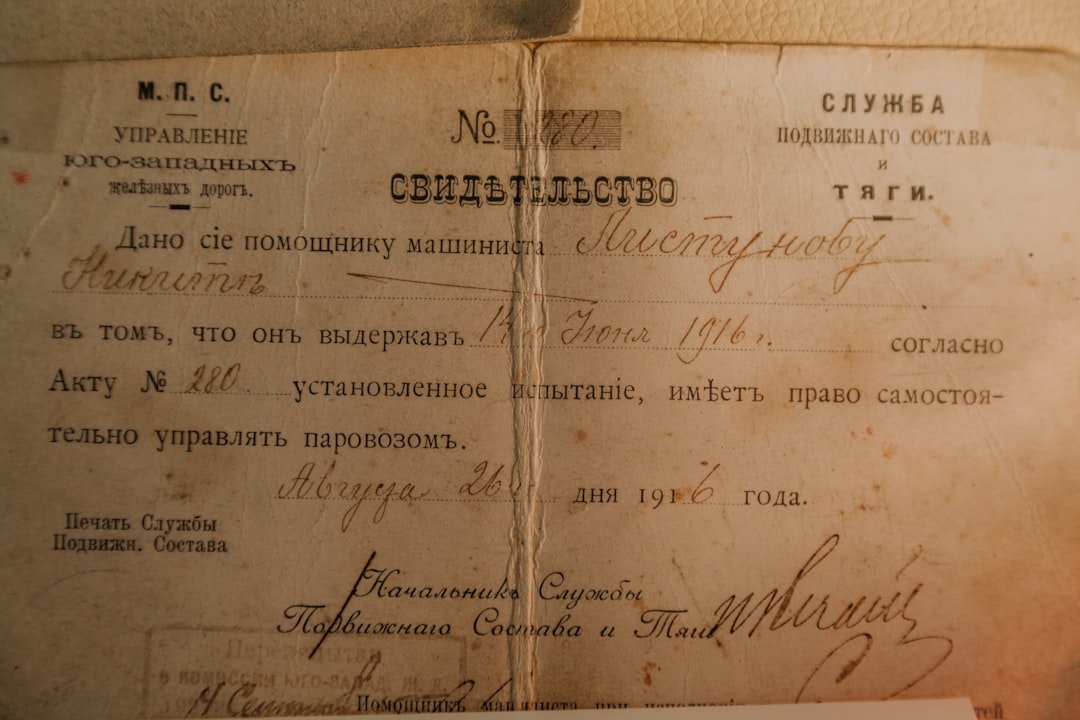 М. П. С.
УПРАВЛЕНІЕ
ЮГО-ЗАПАДНЫХЪ
желѣзныхъ дорогъ.
№ 280.
СВИДѢТЕЛЬСТВО
СЛУЖБА
ПОДВИЖНАГО СОСТАВА
и
ТЯГИ.
Дано сіе помощнику машиниста Листунову
Никитѣ
въ томъ, что онъ выдержавъ Іюня 1916 г. согласно
Акту № 280 установленное испытаніе, имѣетъ право самостоя-
тельно управлять паровозомъ.
Августа 26 дня 1916 года.
Печать Службы
Подвижн. Состава
Начальникъ Службы
Подвижнаго Состава и Тяги
Перепытан
в комиссии Юго-Запад. ж. д.
Помощникъ машиниста при